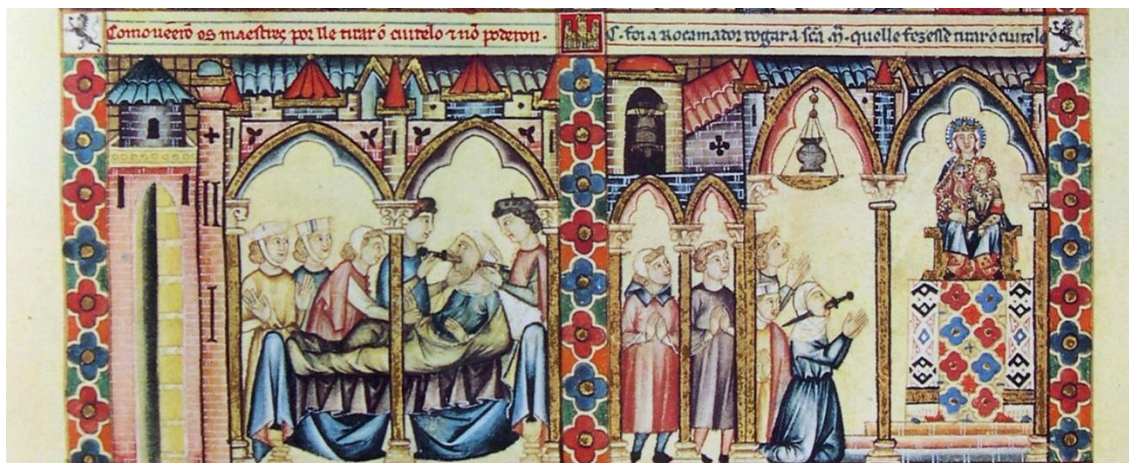 Como ueerō os maestres por lle tirar o cuitelo ⁊ nō poderon ·
C. foi a Rocamador rogar a scā. M̄. quelle fezesse tirar o cuitelo